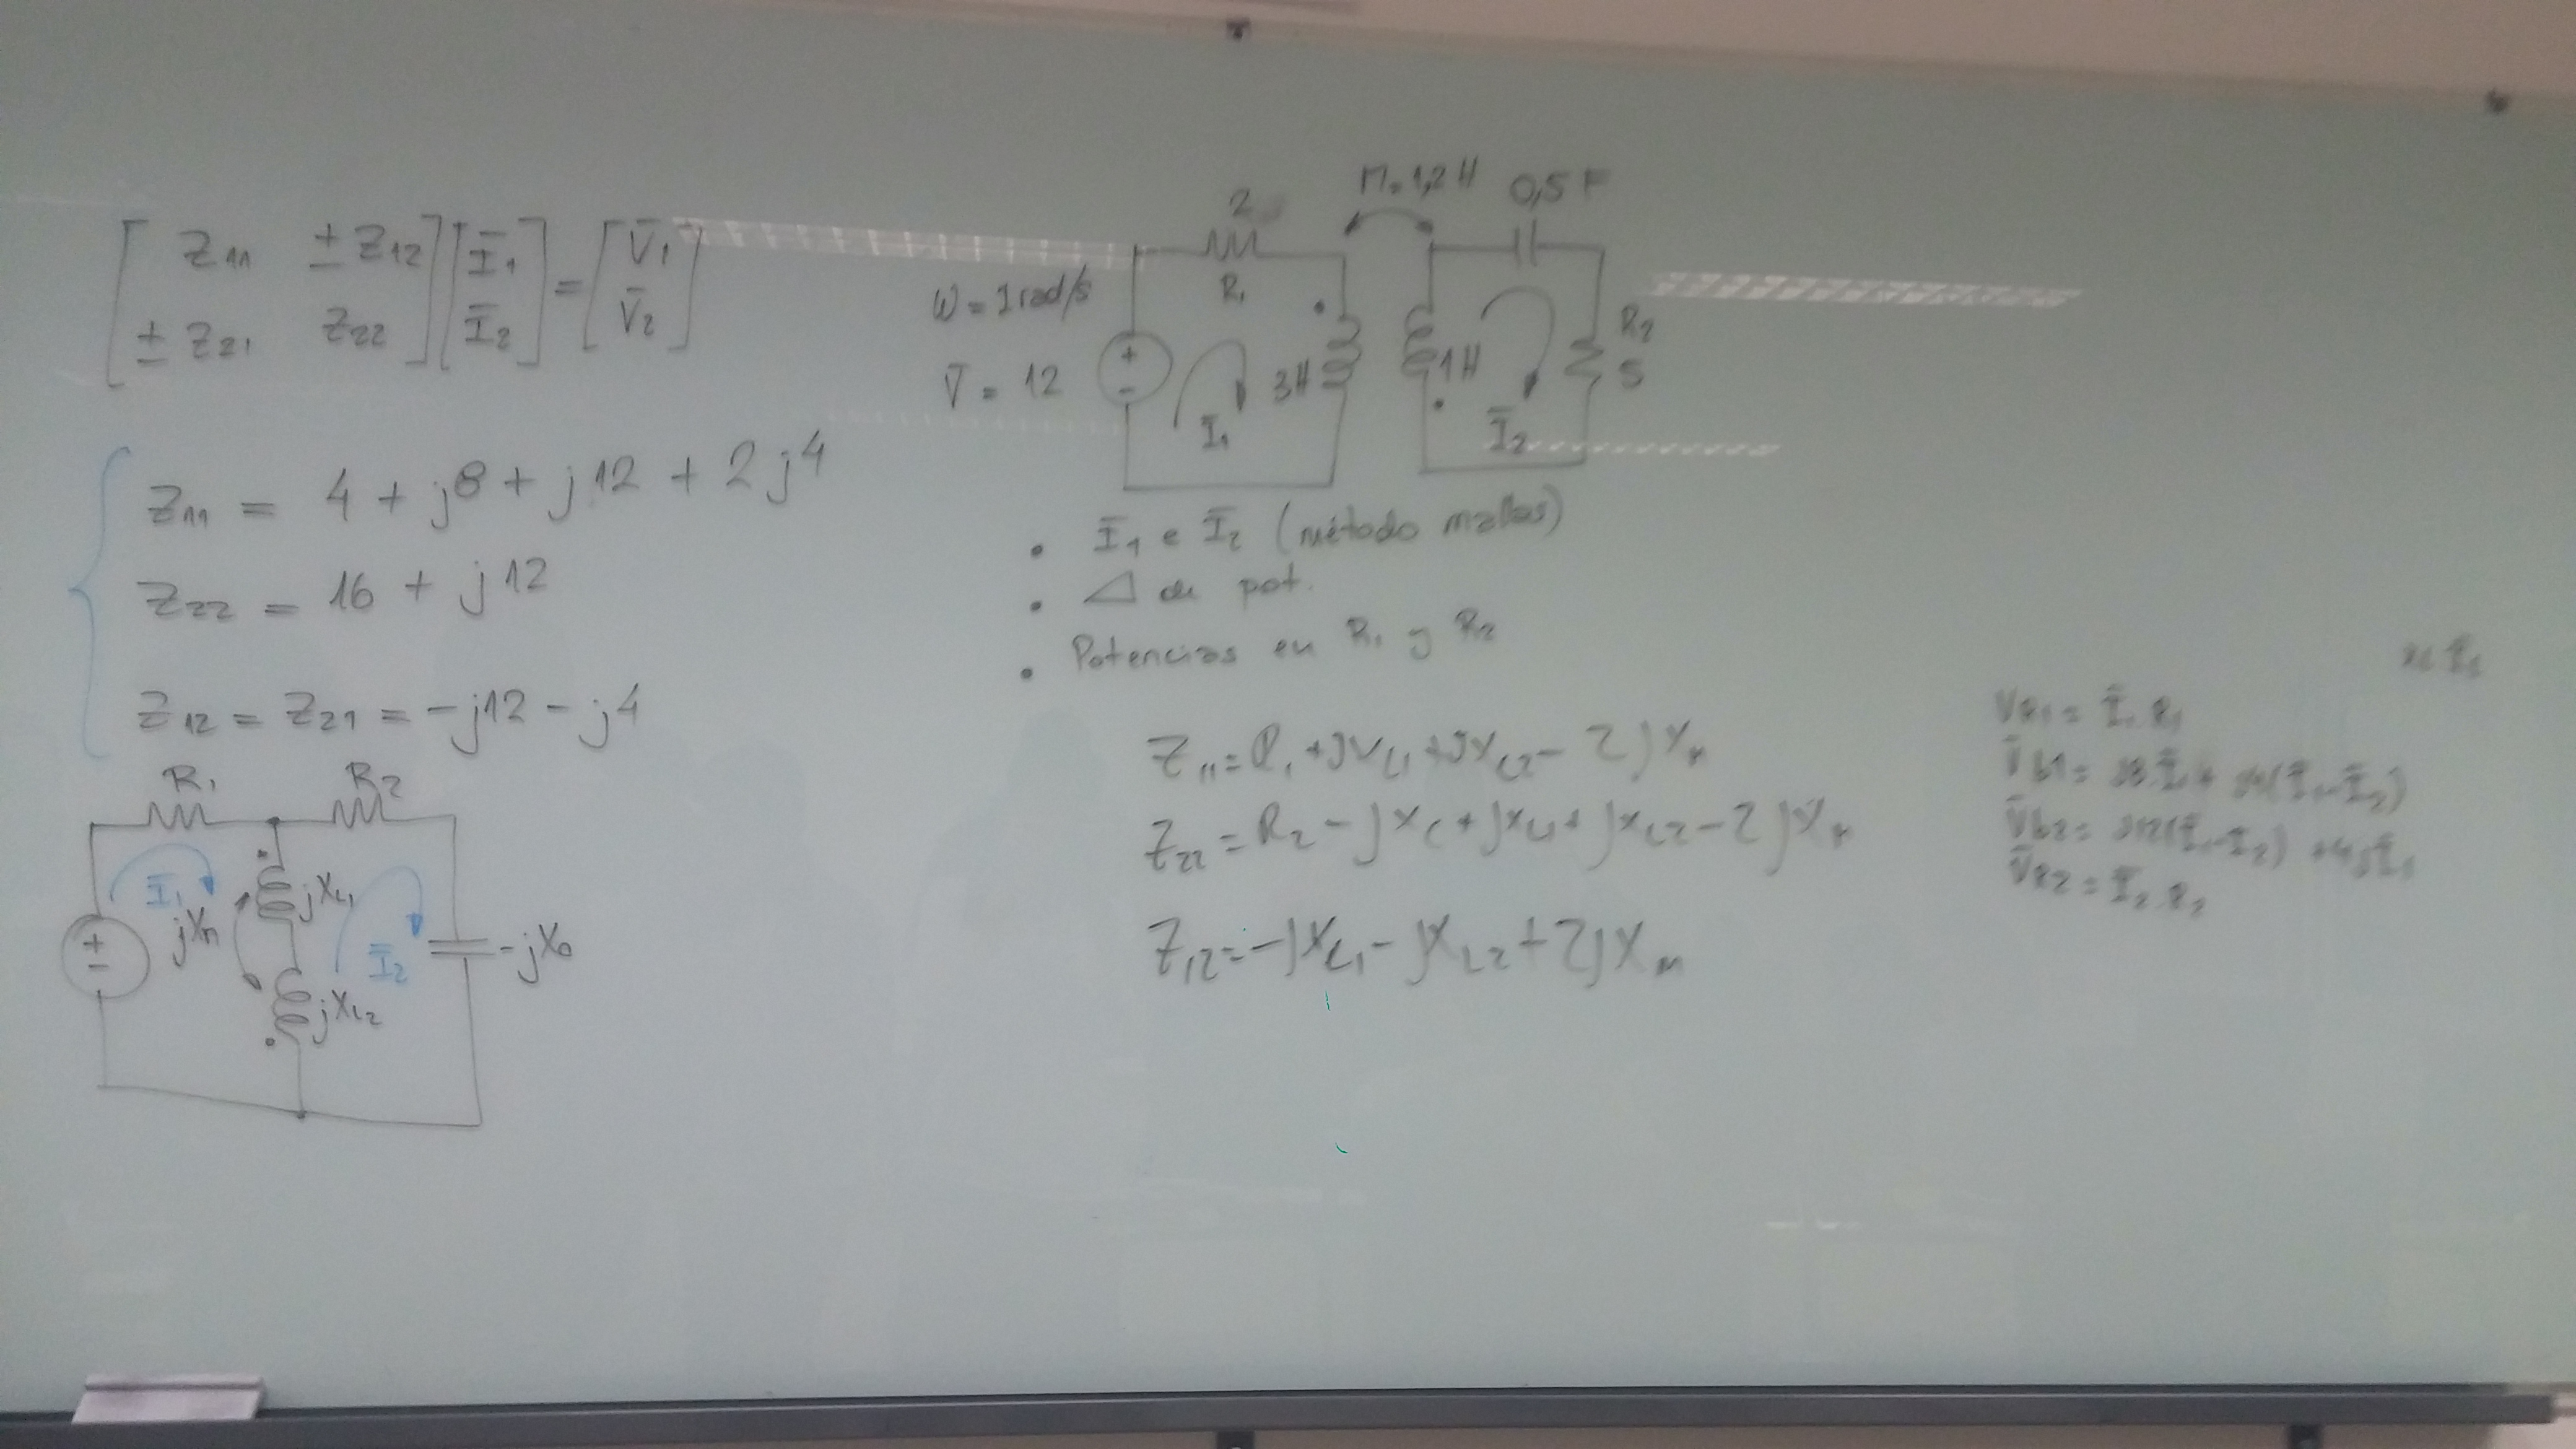 [ Z11 ± Z12 ] [ Ī1 ] = [ V̄1 ]
[ ± Z21 Z22 ] [ Ī2 ] [ V̄2 ]
Z11 = 4 + j8 + j12 + 2j4
Z22 = 16 + j12
Z12 = Z21 = -j12 - j4
R1 R2
Ī1 jXM jXL1
Ī2 jXL2
+
-
M = 1,2 H 0,5 F
2
R1
ω = 1 rad/s
V̄ = 12
+
-
3H 1H
R2
5
Ī1 Ī2
• Ī1 e Ī2 (método mallas)
• △ de pot.
• Potencias en R1 y R2
Z11 = R1 + jXL1 + jXL2 - 2jXM
Z22 = R2 - jXC + jXL1 + jXL2 - 2jXM
Z12 = -jXL1 - jXL2 + 2jXM
VR1 = Ī1 R1
V̄R2 = Ī2 R2